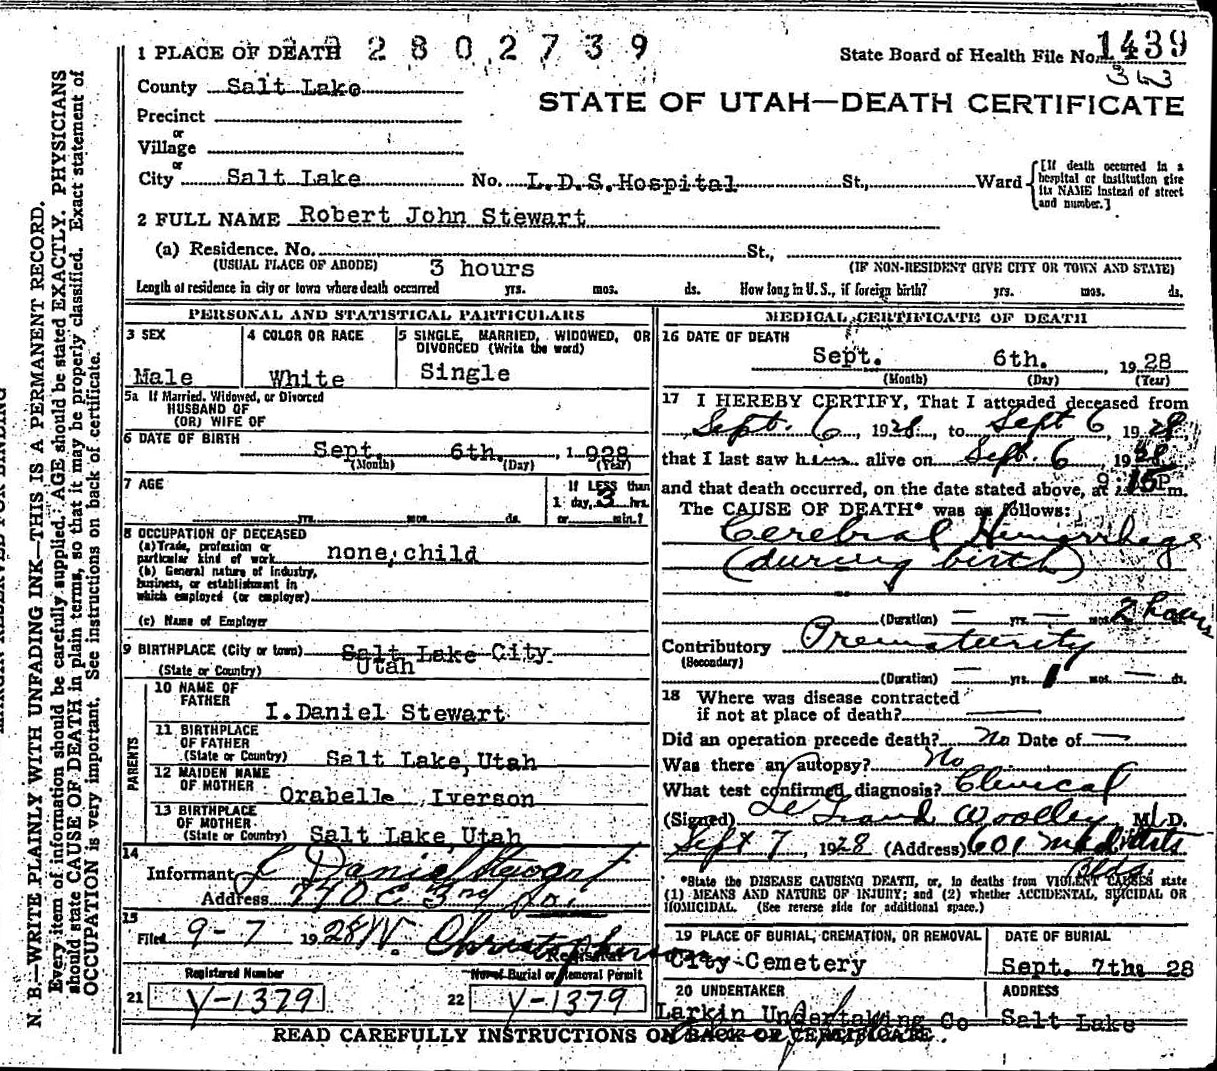 N. B.—WRITE PLAINLY WITH UNFADING INK—THIS IS A PERMANENT RECORD.
Every item of information should be carefully supplied. AGE should be stated EXACTLY. PHYSICIANS
should state CAUSE OF DEATH in plain terms, so that it may be properly classified. Exact statement of
OCCUPATION is very important. See instructions on back of certificate.
1 PLACE OF DEATH 2802739
State Board of Health File No. 1439
STATE OF UTAH—DEATH CERTIFICATE
County Salt Lake
Precinct
or
Village
or
City Salt Lake No. L.D.S. Hospital St., Ward
[If death occurred in a
hospital or institution give
its NAME instead of street
and number.]
2 FULL NAME Robert John Stewart
(a) Residence. No. St.,
(USUAL PLACE OF ABODE) 3 hours (IF NON-RESIDENT GIVE CITY OR TOWN AND STATE)
Length of residence in city or town where death occurred yrs. mos. ds. How long in U. S., if foreign birth? yrs. mos. ds.
PERSONAL AND STATISTICAL PARTICULARS
3 SEX
Male
4 COLOR OR RACE
White
5 SINGLE, MARRIED, WIDOWED, OR
DIVORCED (Write the word)
Single
5a If Married, Widowed, or Divorced
HUSBAND OF
(OR) WIFE OF
6 DATE OF BIRTH
Sept. 6th. , 1 928
(Month) (Day) (Year)
7 AGE
yrs. mos. ds.
If LESS than
1 day, 3 hrs.
or min.?
8 OCCUPATION OF DECEASED
(a) Trade, profession or
particular kind of work none, child
(b) General nature of industry,
business, or establishment in
which employed (or employer)
(c) Name of Employer
9 BIRTHPLACE (City or town) Salt Lake City
(State or Country) Utah
PARENTS
10 NAME OF
FATHER
I. Daniel Stewart
11 BIRTHPLACE
OF FATHER
(State or Country) Salt Lake, Utah
12 MAIDEN NAME
OF MOTHER Orabelle Iverson
13 BIRTHPLACE
OF MOTHER
(State or Country) Salt Lake, Utah
14
Informant I Daniel Stewart
Address 740 E 3rd So.
15
Filed 9-7 1928 W. Christopherson
Registrar
Registered Number
21 Y-1379
No. of Burial or Removal Permit
22 Y-1379
MEDICAL CERTIFICATE OF DEATH
16 DATE OF DEATH
Sept. 6th. 1928
(Month) (Day) (Year)
17 I HEREBY CERTIFY, That I attended deceased from
Sept. 6, 1928, to Sept 6, 1928
that I last saw him alive on Sept. 6 1928
and that death occurred, on the date stated above, at 9:15P m.
The CAUSE OF DEATH* was as follows:
Cerebral Hemorrhage
(during birth)
(Duration) — yrs. — mos. 2 hours
Contributory Prematurity
(Secondary)
(Duration) — yrs. 1 mos. — ds.
18 Where was disease contracted
if not at place of death?
Did an operation precede death? No Date of —
Was there an autopsy? No
What test confirmed diagnosis? Clinical
(Signed) Le Grand Woolley M. D.
Sept 7, 1928 (Address) 601 Med Arts
Bldg.
*State the DISEASE CAUSING DEATH, or, in deaths from VIOLENT CAUSES state
(1) MEANS AND NATURE OF INJURY; and (2) whether ACCIDENTAL, SUICIDAL OR
HOMICIDAL. (See reverse side for additional space.)
19 PLACE OF BURIAL, CREMATION, OR REMOVAL
City Cemetery
DATE OF BURIAL
Sept. 7th. 28
20 UNDERTAKER
Larkin Undertaking Co
ADDRESS
Salt Lake
READ CAREFULLY INSTRUCTIONS ON BACK OF CERTIFICATE.